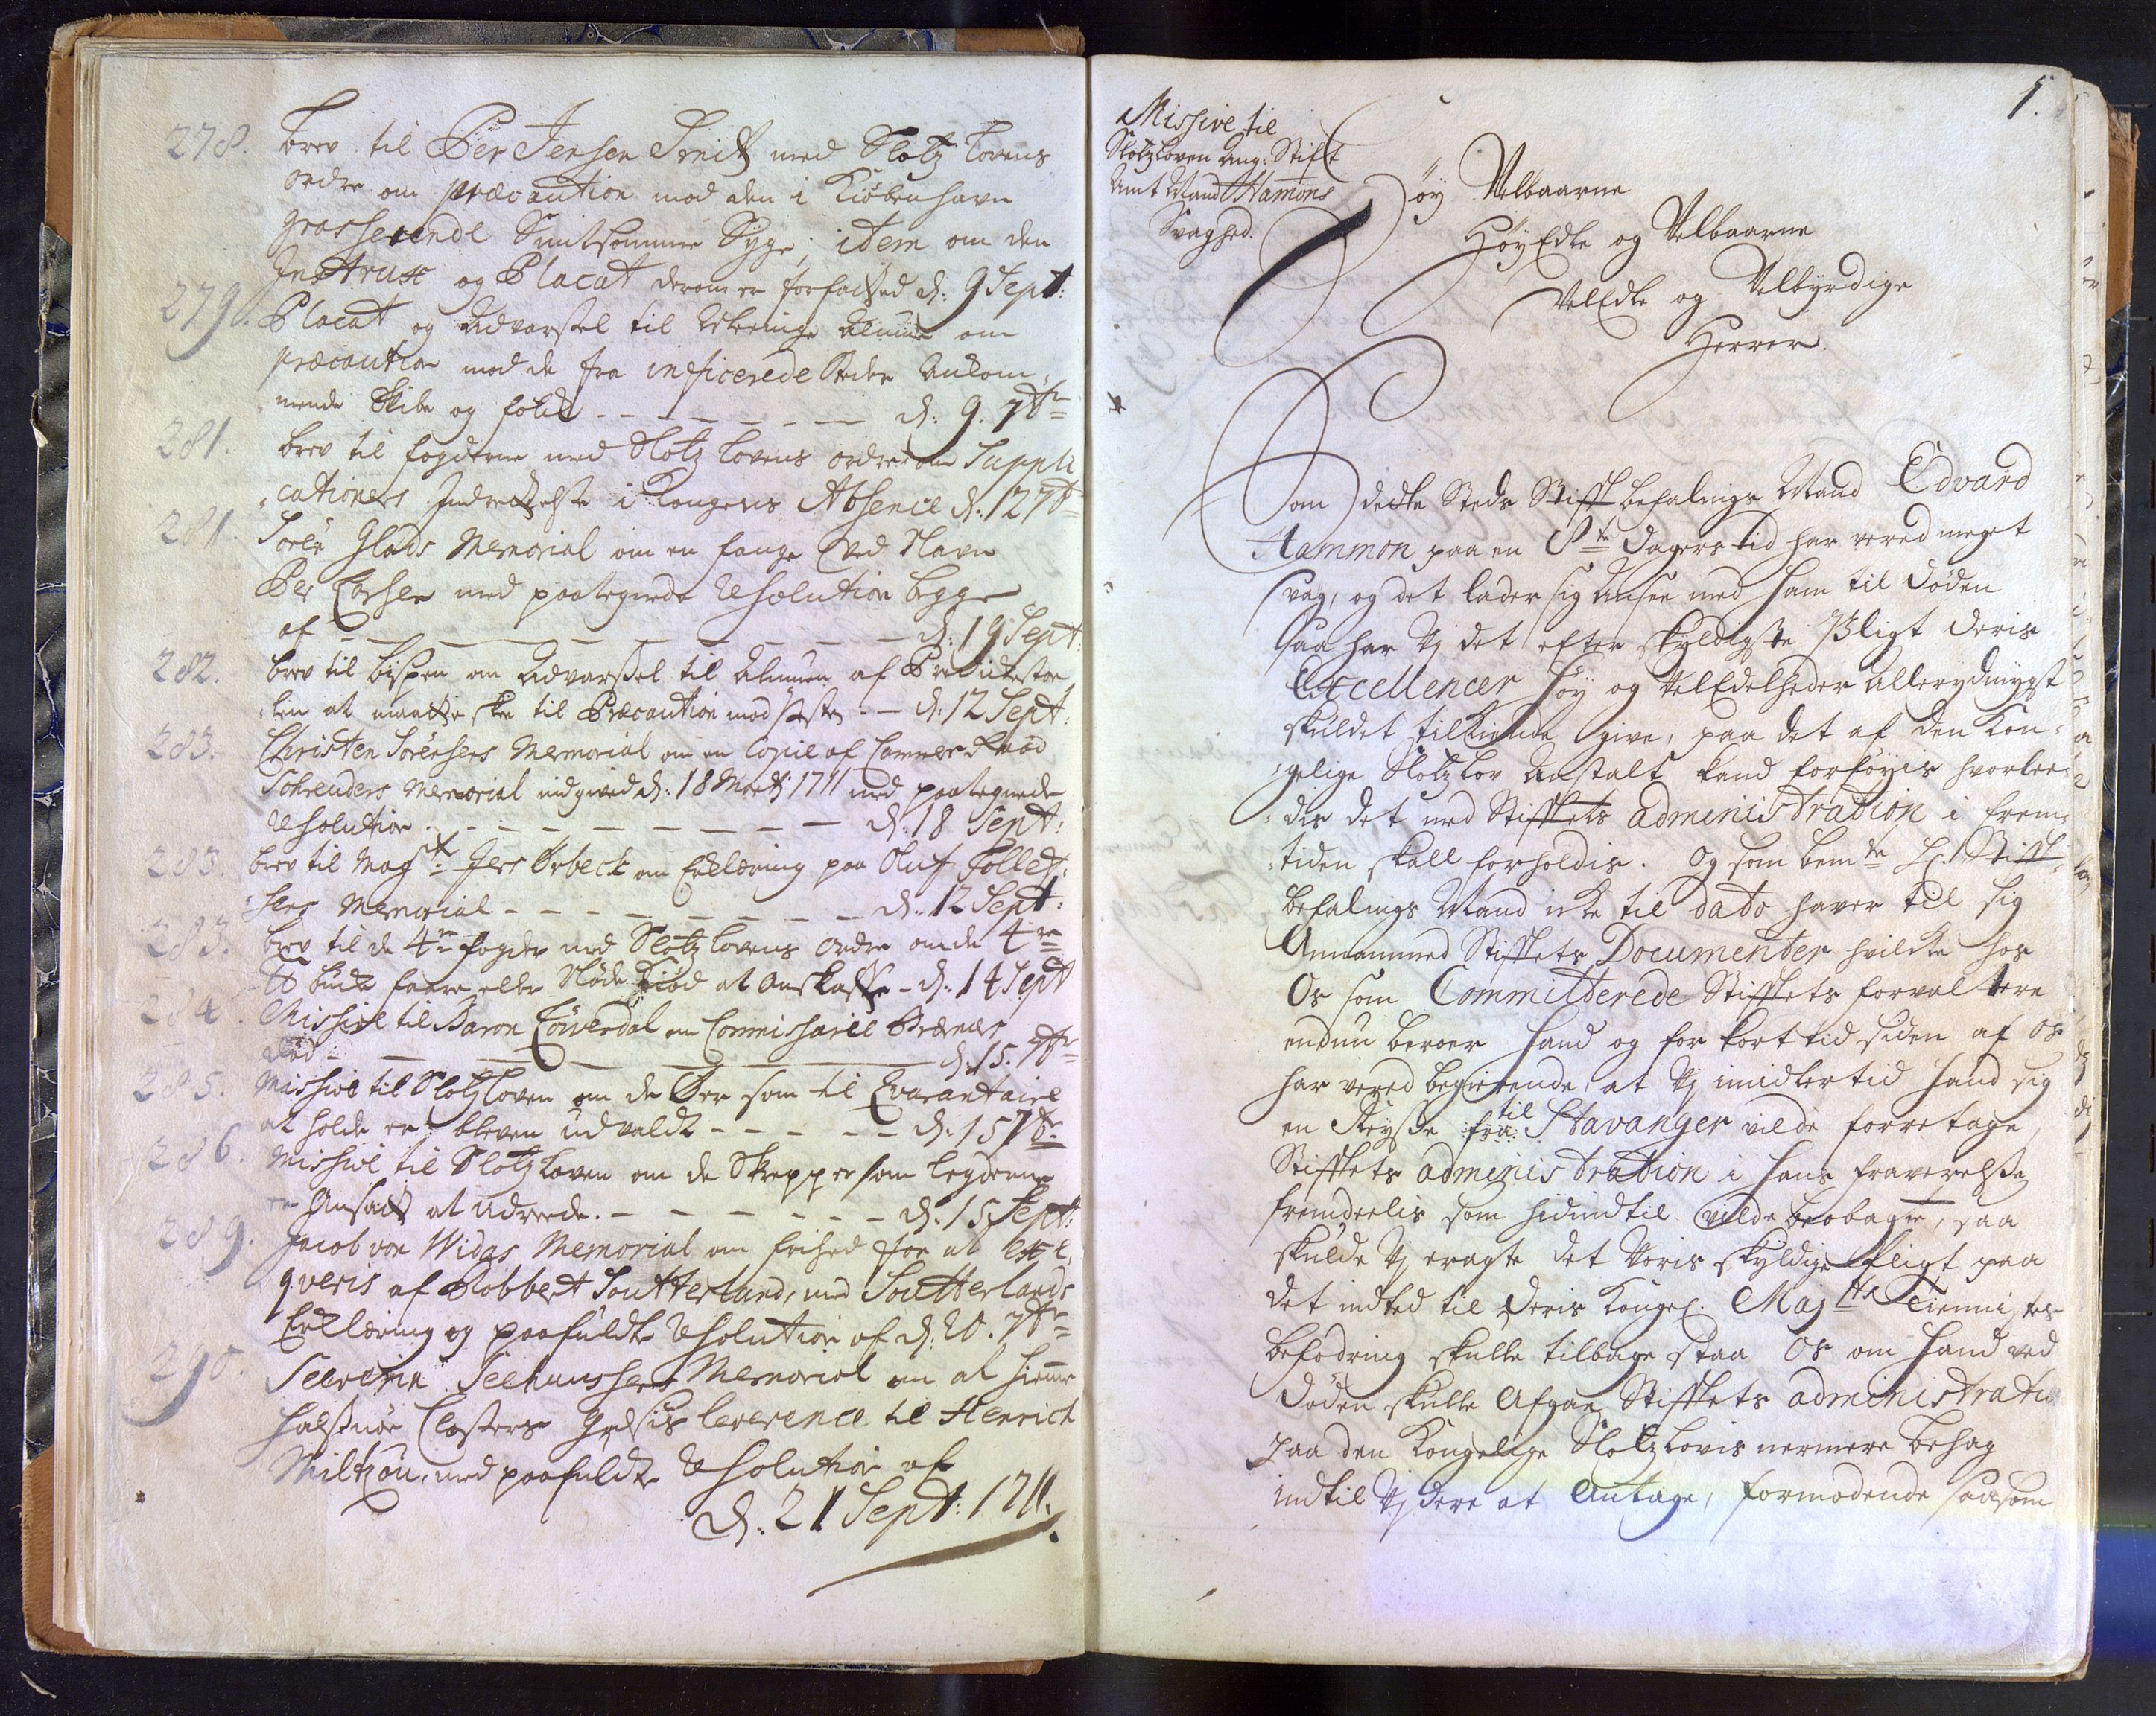 278. brev til Per Jensen Smit med Slotz lovens
ordre om præcaution mod den i Kiøbenhavn
grasserende Smitsomme Syge; item om den
Instrux og Placat derom er forfatted d: 9 Sept:
279. Placat og Advarsel til Almue om
præcaution mod de fra inficerede Steder Ankom-
mende Skibe og folck d: 9. 7br
281. brev til fogderne med Slotz lovens ordre om Suppli
cationers Indrettelse i Kongens Absence d. 12 7br
281. Sören Glads Memorial om en fange ved Navn
Per Larsen med paategnede Resolution begge
af d: 19 Sept:
282. brev til bispen om Advarsel til Almuen af Predickestoe
len at maatte skee til Præcaution mod Pesten d: 12 Sept:
283. Christen Sörensens Memorial om en Copie af Cammer Raad
Schreuders Memorial indgived d: 18 Marti 1711 med paategnede
Resolution d: 18 Sept:
283. brev til Magst: Jens Ørbeck om Erklæring paa Oluf Tollef-
sens Memorial d: 12 Sept:
283. brev til de 4re fogder med Slotz lovens ordre om de 4re
faare eller Nøde Kiød at Anskaffe d: 14 Sept
284. Missive til Baron Löwendal om Commissarie
død d. 15. 7br
285. Missive til Slotz loven om de Øer som til Qvarantaine
at holde er bleven udvaldt d. 15 7br
286. Missive til Slotz loven om de Skrepper som legderne
er Ansatt at udrede. d: 15 Sept:
289. Jacob von Widas Memorial om frihed for at Exe
qveris af Robbert Soutterland, med Soutterlands
Erklæring og paafuldte Resolution af d: 20. 7br
290. Severin Seehuussens Memorial om at hiemme
halsnøe Closters Godsis leverence til Henrich
Miltzou, med paafuldte Resolution af
d: 21 Sept: 1711.
1.
Missive til
Slotzloven Ang: Stift
Amt Mand Hamons
Svaghed.
Høy Velbaarne
HøyEdle og Velbaarne
VelEdle og Velbyrdige
Herrer.
Som dette Steds Stifft befalings Mand Edvard
Hammon paa en 8te dagers tid har vered meget
svag, og det lader sig Ansee med ham til døden
saa har Vj det efter skyldigste Pligt deris
Excellencer høy og VelEdelheder allerydmygst
skuldet tilkiende give, paa det af den Kon-
gelige Slotz lov Anstalt kand forføyis hvorlee-
dis det med Stifftets administration i frem-
tiden skall forholdis. Og som bemte Hr. Stifft
befalings Mand icke til dato haver til sig
Annammed Stifftets Documenter hvilcke hos
Os som Committerede Stifftets forvaltere
endnu beroer hand og for kort tid siden af os
har vered begierende, at Vj imidlertid hand sig
en Reyse fra til Stavanger vilde forretage,
Stifftets administration i hans fraverelse
fremdeelis som hidindtil vilde beobagte, saa
skulde Vj eragte det Voris skyldige Pligt paa
det indted til deris Kongel: Majtts tienistes
befodring skulle tilbage staa Os om hand ved
døden skulle Afgaae Stifftets administratio
paa den Kongelige Slotz lovis nermere behag
indtil Vj dere at Antage, formodende saasom